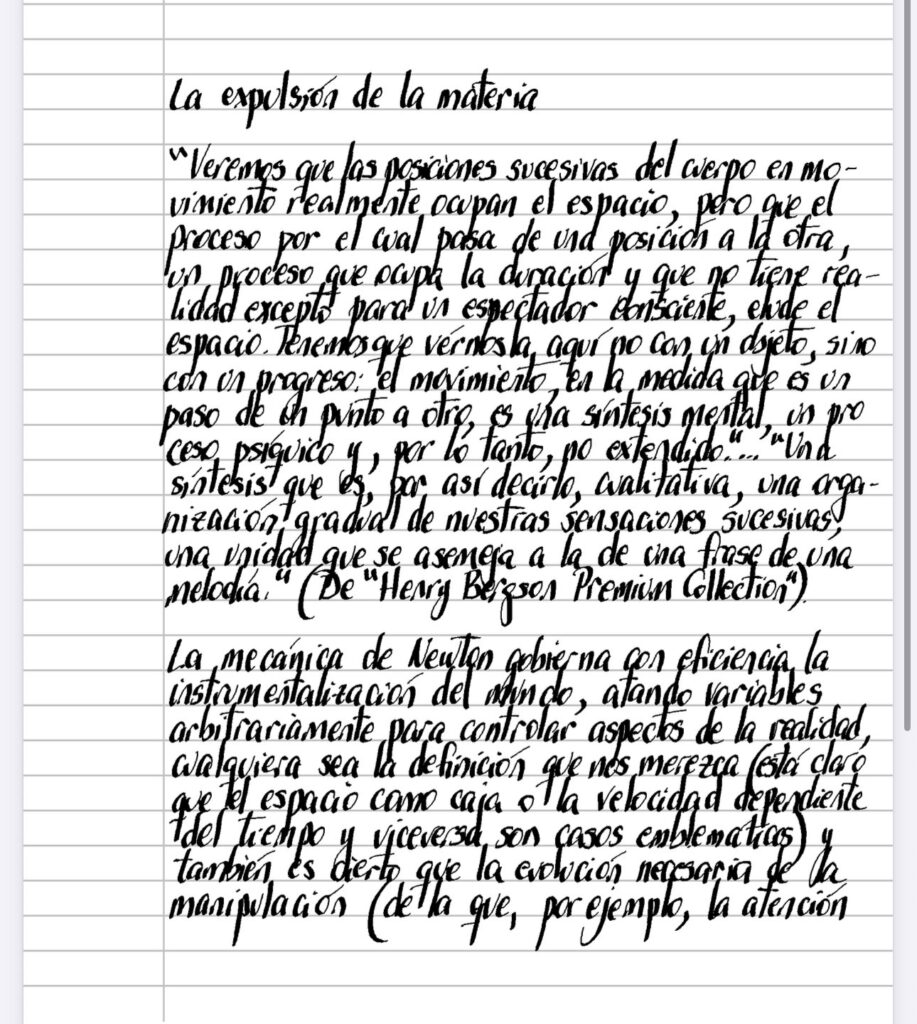 La expulsión de la materia
"Veremos que las posiciones sucesivas del cuerpo en mo-
vimiento realmente ocupan el espacio, pero que el
proceso por el cual pasa de una posición a la otra,
un proceso que ocupa la duración y que no tiene rea-
lidad excepto para un espectador consciente, elude el
espacio. Tenemos que vérnosla aquí no con un objeto, sino
con un progreso: el movimiento, en la medida que es un
paso de un punto a otro, es una síntesis mental, un pro
ceso psíquico y, por lo tanto, no extendido."... "Una
síntesis que es, por así decirlo, cualitativa, una orga-
nización gradual de nuestras sensaciones sucesivas,
una unidad que se asemeja a la de una frase de una
melodía." (De "Henry Bergson Premium Collection")
La mecánica de Newton gobierna con eficiencia la
instrumentalización del mundo, atando variables
arbitrariamente para controlar aspectos de la realidad,
cualquiera sea la definición que nos merezca (está claro
que el espacio como caja o la velocidad dependiente
del tiempo y viceversa son casos emblemáticos) y
también es cierto que la evolución necesaria de la
manipulación (de la que, por ejemplo, la atención